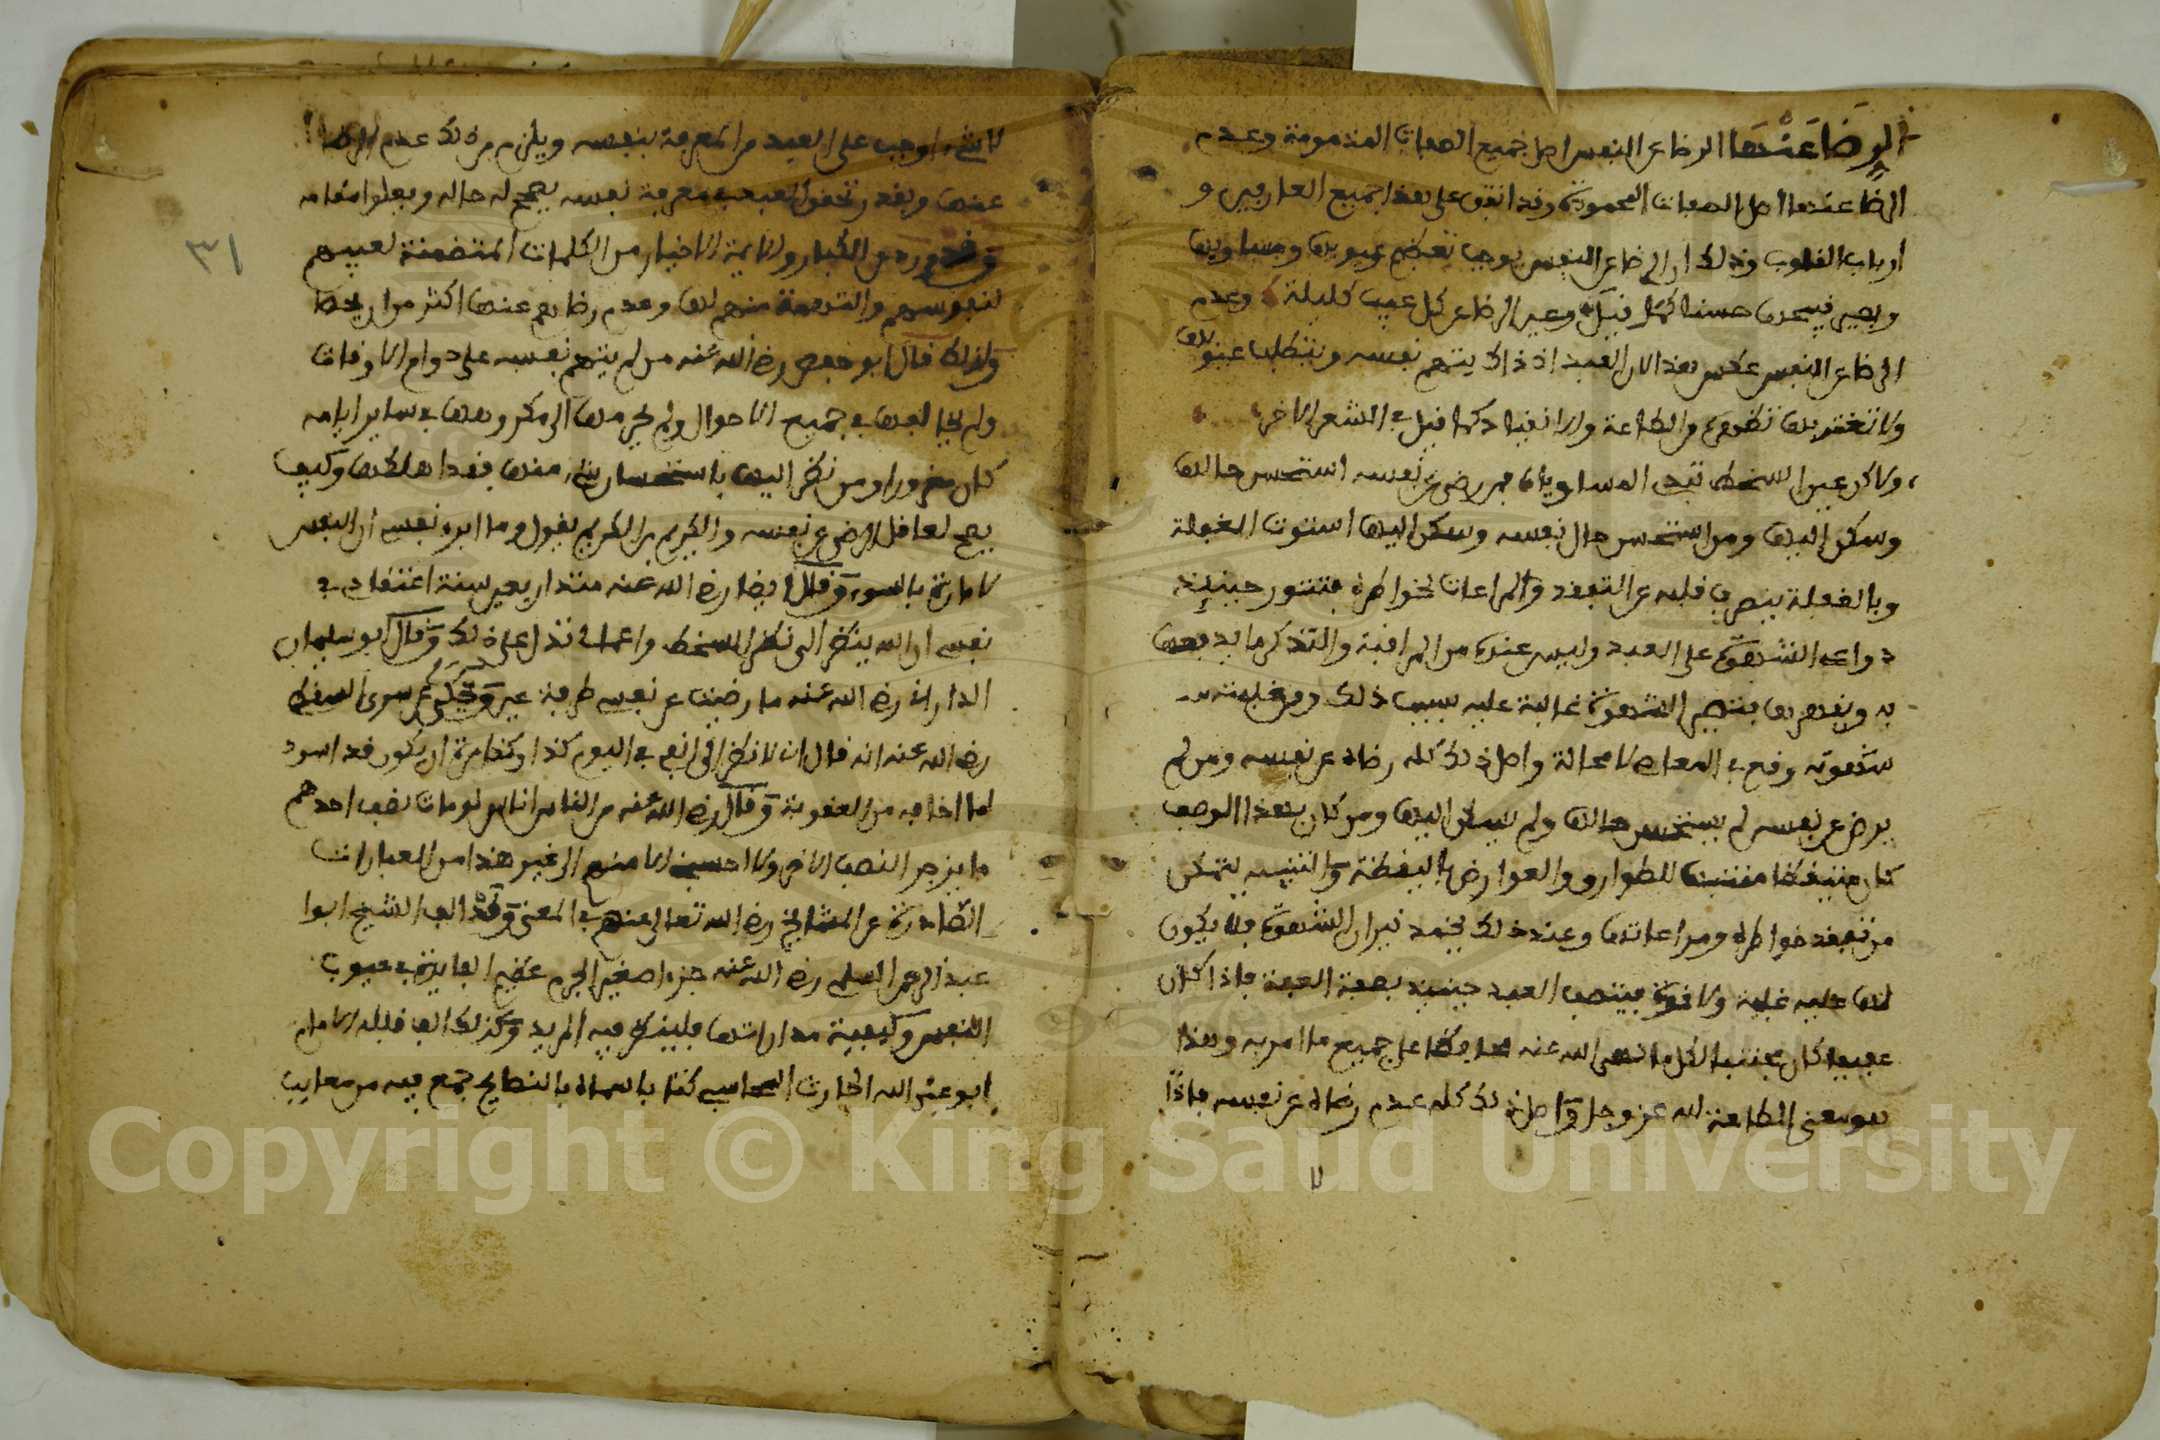 الرضا عنها الرضا عن النفس اصل جميع الصفات المذمومة وعدم
الرضا عنها اصل الصفات المحمودة وقد اتفق على هذا جميع العارفين و
ارباب القلوب وذلك ان الرضا عن النفس يوجب تغطية عيوبها ومساويها
ويصير قبيحها حسنا كما قيل وعين الرضا عن كل عيب كليلة وعدم
الرضا عن النفس عكس هذا لان العبد اذ ذاك يتهم نفسه ويتطلب عيوبها
ولا تغتر بما تظهره من الطاعة والانقياد كما قيل في الشعر الاخر
ولاكن عين السخط تبدي المساويا فمن رضي عن نفسه استحسن حالها
وسكن اليها ومن استحسن حال نفسه وسكن اليها استولت الغفلة
وبالغفلة ينصرف قلبه عن التفقد والمراعات لخواطره فتثور حينئذ
دواعي الشهوة على العبد وليس عنده من المراقبة والتذكر ما يدفعها
به ويقهرها فتصير الشهوة غالبة عليه بسبب ذلك ومن غلبته
شهوته وقع في المعاصي لا محالة واصل ذلك كله رضاه عن نفسه ومن لم
يرض عن نفسه لم يستحسن حالها ولم يسكن اليها ومن كان بهذا الوصف
كان متيقظا متنبها للطوارق والعوارض بالتيقظ والتنبيه يتمكن
من تفقد خواطره ومراعاتها وعند ذلك تخمد نيران الشهوة فلا يكون
لها عليه غلبة ولا قوة فيتصف العبد حينئذ بصفة العفة فاذا كان
عفيفا كان مجتنبا لكل ما نهى الله عنه محافظا على جميع ما امر به وهذا
هو معنى الطاعة لله عز وجل واصل ذلك كله عدم رضاه عن نفسه فاذا
لا شيء اوجب على العبد من المعرفة بنفسه ويلزم من ذلك عدم الرضا
عنها وبقدر تحقق العبد في معرفة نفسه يصح له حاله ويعلوا مقامه
وقد ورد عن الكبار والايمة الاخيار من الكلمات المتضمنة لعيبهم
لنفوسهم والتهمة منهم لها وعدم رضاهم عنها اكثر من ان يحصا
ولذلك قال ابو حفص رضي الله عنه من لم يتهم نفسه على دوام الاوقات
ولم يخالفها في جميع الاحوال ولم يجرها الى مكروهها في ساير ايامه
كان مغرورا ومن نظر اليها باستحسان شيء منها فقد اهلكها وكيف
يصح لعاقل الرضى عن نفسه والكريم بن الكريم يقول وما ابرئ نفسي ان النفس
لامارة بالسوء وقال ايضا رضي الله عنه منذ اربعين سنة اعتقادي في
نفسي ان الله ينظر الى نظر السخط واعمالي تدل على ذلك وقال ابو سليمان
الداراني رضي الله عنه ما رضيت عن نفسي طرفة عين وحكي عن سري السقطي
رضي الله عنه انه قال اني لانظر الى انفي في اليوم كذا وكذا مرة ان يكون قد اسود
لما اخافه من العقوبة وقال رضي الله عنه من الناس اناس لو مات نصف احدهم
ما ينزجر النصف الاخر ولا احسبني الا منهم الى غير هذا من العبارات
الصادرة عن المشايخ رضي الله تعالى عنهم في المعنى وقد الف الشيخ ابوا
عبد الرحمن السلمي رضي الله عنه جزءا صغير الجرم عظيم الفايدة في عيوب
النفس وكيفية مداراتها فلينظره فيه المريد وكذلك الف قبله الامام
ابو عبد الله الحارث المحاسبي كتابا سماه بالنصايح جمع فيه من معايب
٣١